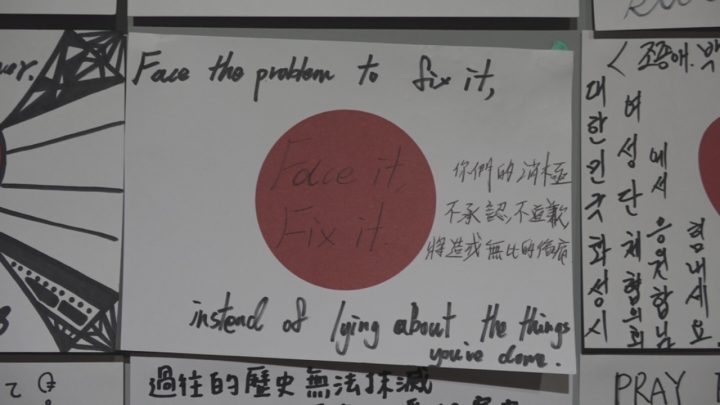 Face the problem to fix it,
Face it,
Fix it.
你們的消極
不承認,不道歉
將造成無比的傷痛
instead of lying about the things
you've done.
過往的歷史無法抹滅
< 조종애. 박
대한민국 화성시
여성단체협의회
에서
힘내세요
PRAY